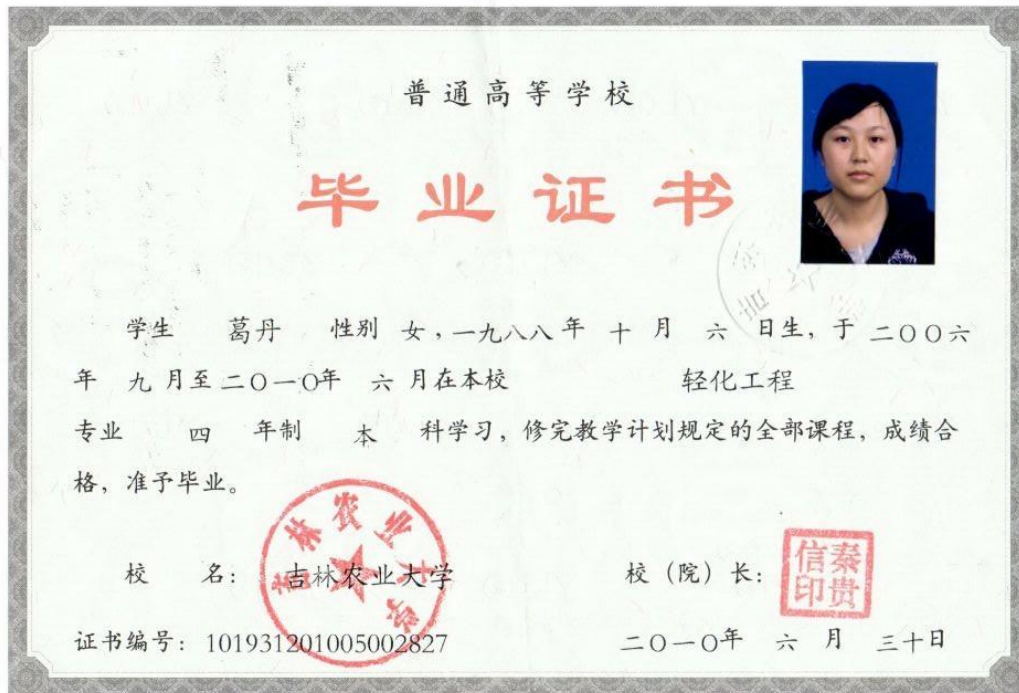 普通高等学校
毕业证书
学生 葛丹 性别 女,一九八八年 十 月 六 日生,于 二〇〇六
年 九 月至二〇一〇年 六 月在本校 轻化工程
专业 四 年制 本 科学习,修完教学计划规定的全部课程,成绩合
格,准予毕业。
吉林农业大学
校 名: 吉林农业大学 校(院)长:
秦贵信印
证书编号:101931201005002827 二〇一〇年 六 月 三十日